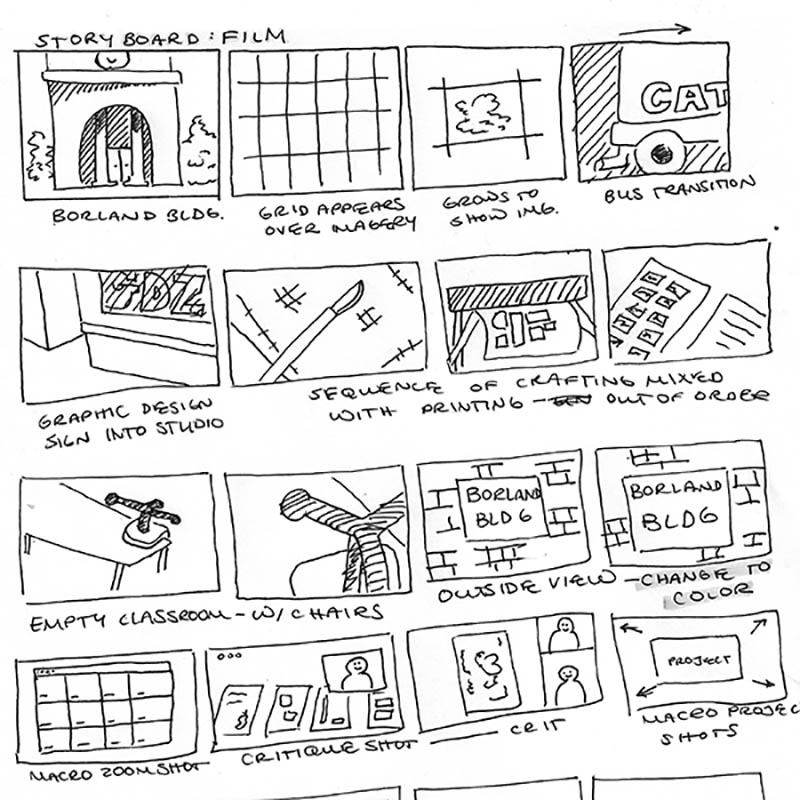 STORYBOARD: FILM
CAT
BORLAND BLDG.
GRID APPEARS
OVER IMAGERY
GROWS TO
SHOW IMG.
BUS TRANSITION
GRAPHIC DESIGN
SIGN INTO STUDIO
SEQUENCE OF CRAFTING MIXED
WITH PRINTING - OUT OF ORDER
BORLAND
BLDG
BORLAND
BLDG
EMPTY CLASSROOM - W/ CHAIRS
OUTSIDE VIEW - CHANGE TO
COLOR
PROJECT
MACRO ZOOM SHOT
CRITIQUE SHOT
CRIT
MACRO PROJEC
SHOTS